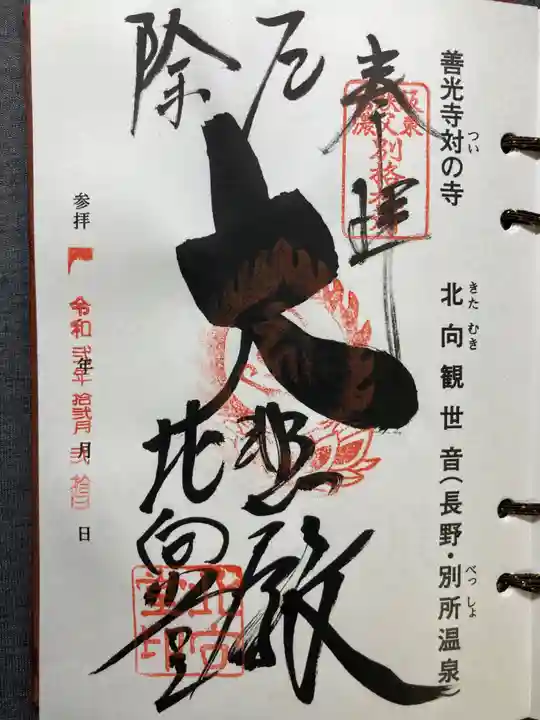 善光寺対の寺 北向観世音(長野・別所温泉)
つい
きた むき
べっしょ
奉拝
坂東
秩父
別格本山
厄除
大悲殿
北向堂
参拝 年 月 日
令和弐年拾弐月弐拾日